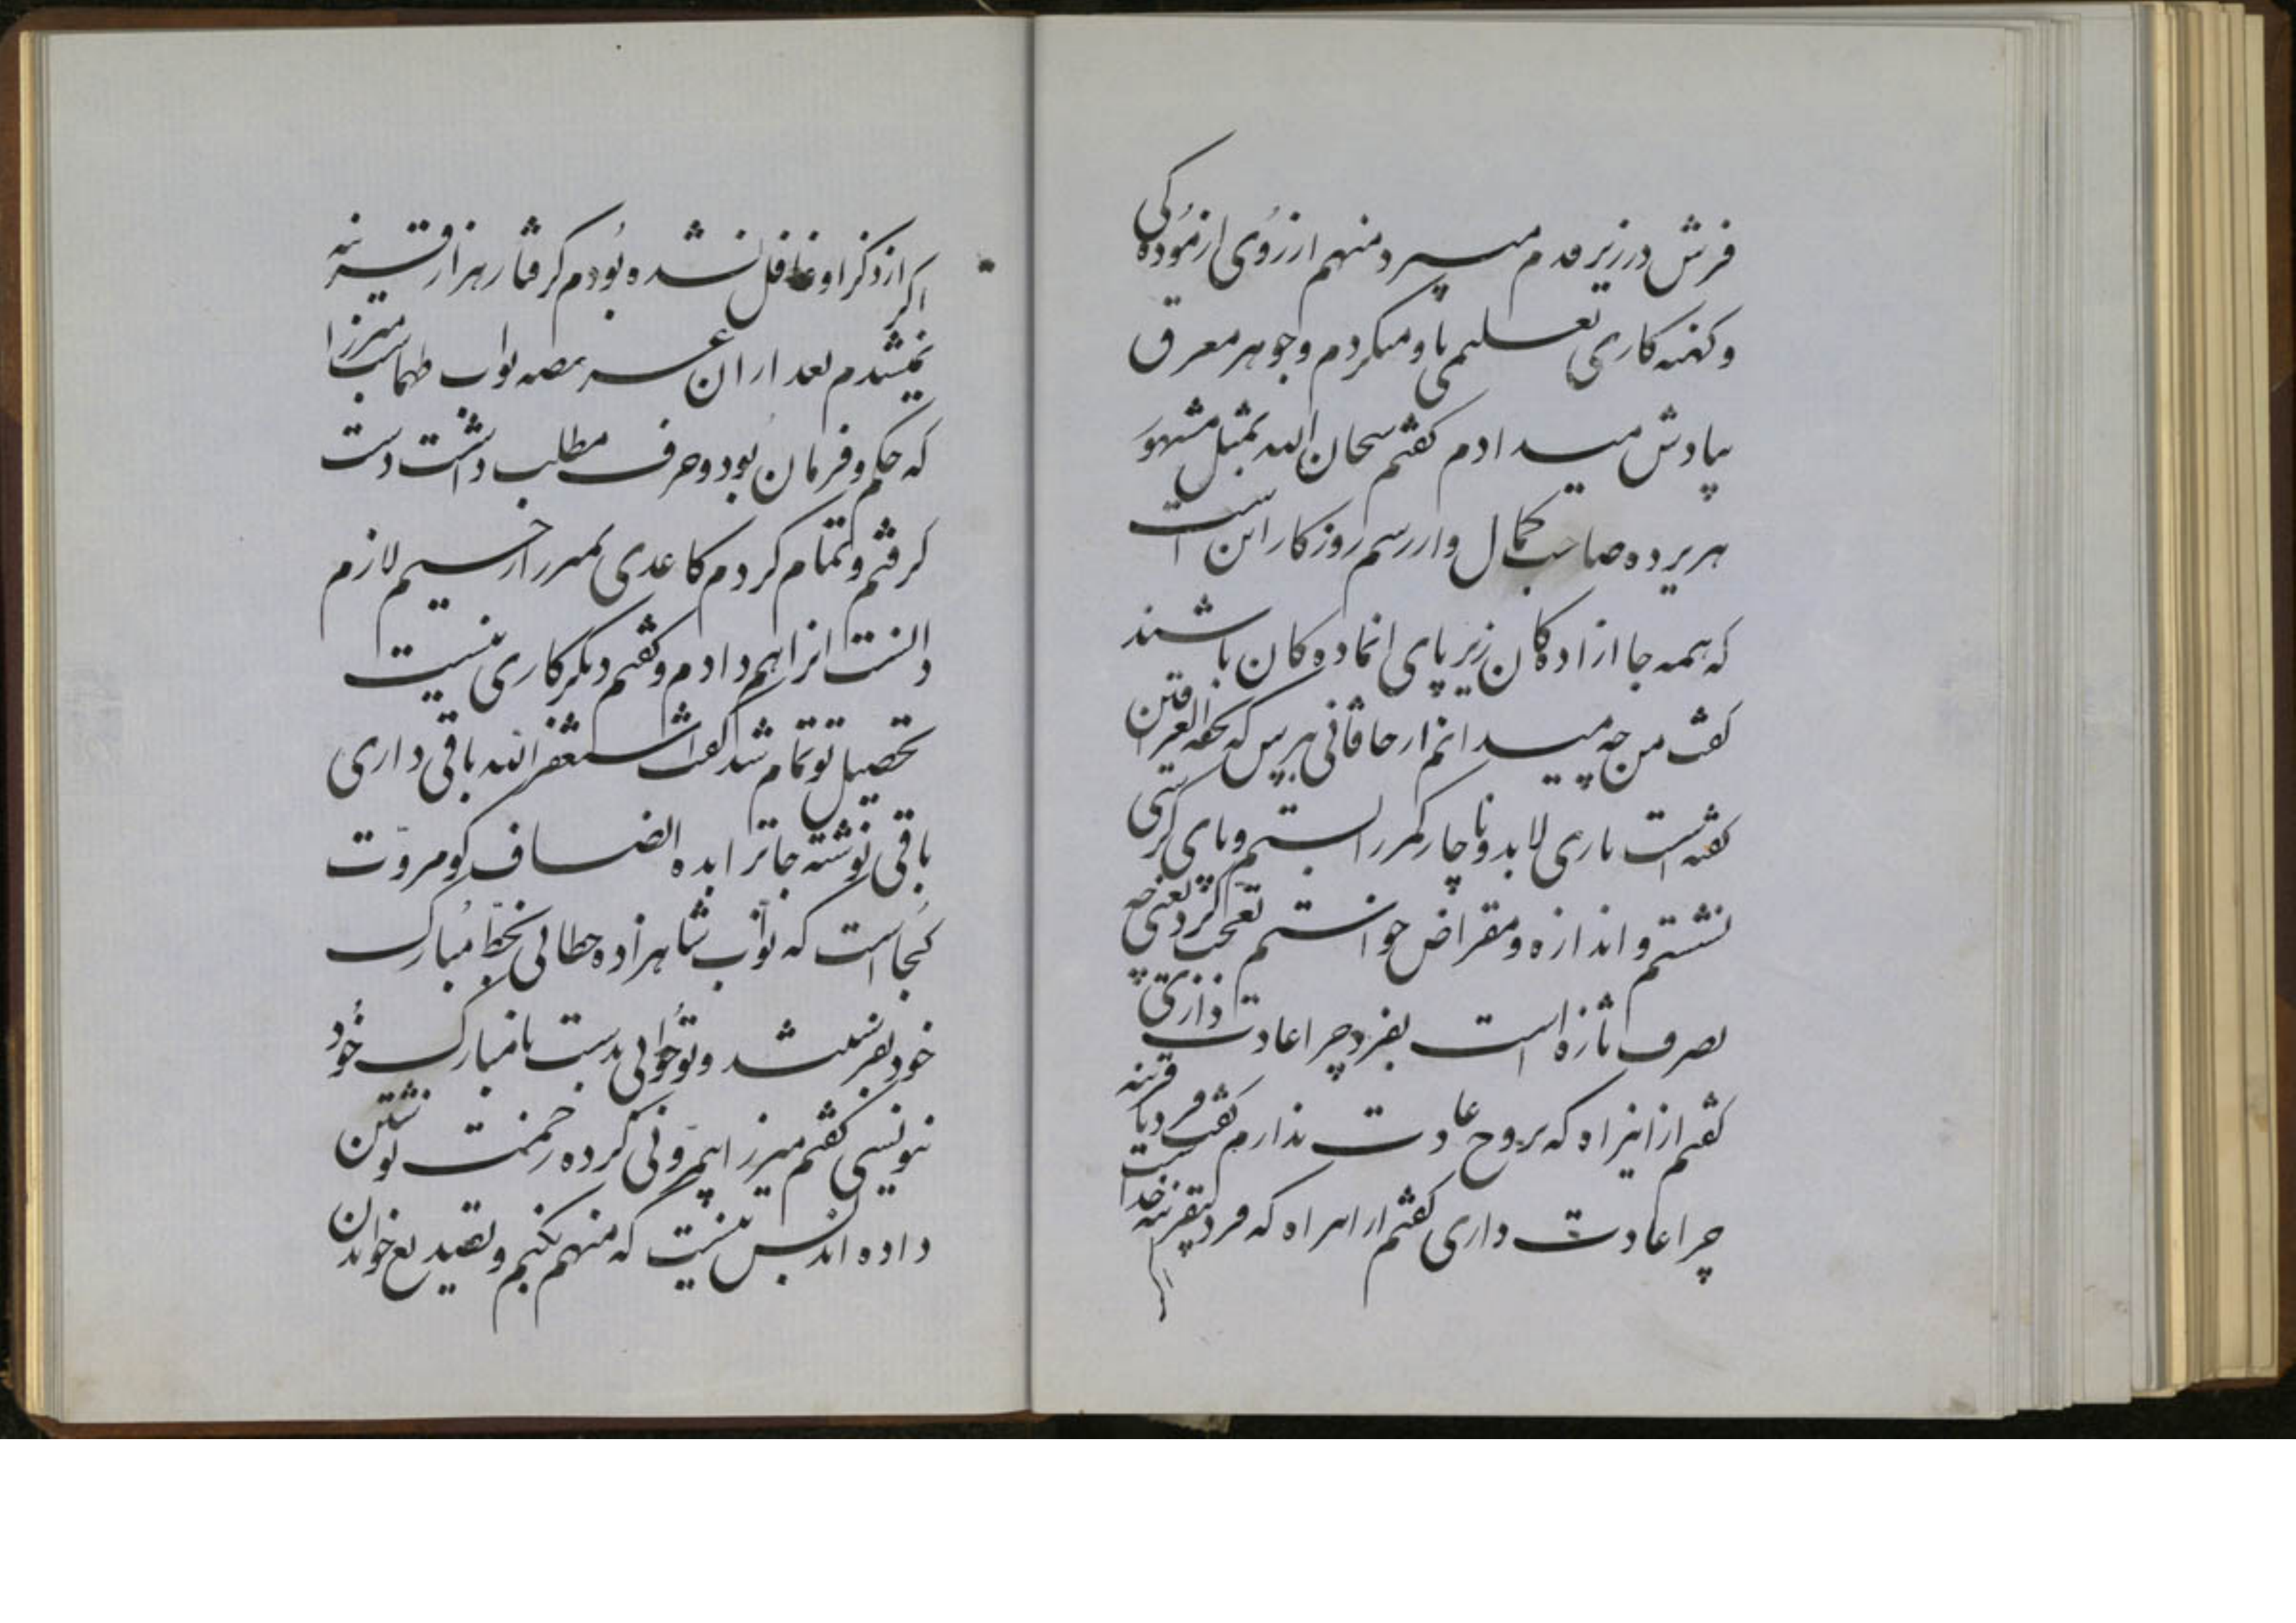 فرش در زیر قدم میسپرد منهم از روی ازموده کی
و کهنه کاری تعلیمی باو میکردم و جوهر معرق
بپادش میدادم کفتم سبحان الله بمثل مشهور
هر پرده صاحب کمال و از رسم روزکار این است
که همه جا ازادکان زیر پای افتاده کان باشند
کفت من چه میدانم از خاقانی بپرس که تحفه العراقین
کفته است باری لابد و ناچار کمر را بستم و پای کرسی
نشستم و اندازه و مقراض خواستم تعجب کرد یعنی چه
تصرف تازه است بفرد چرا عادت نداری
کفتم از اینراه که بزوج عادت ندارم کفت فرد با قرینه
چرا عادت داری کفتم از این راه که فرد بیقرینه خداست
اکر از ذکر او غافل نشده بودم کرفتار هزار قرینه
نمیشدم بعد از ان عریضه نواب طهماسب میرزا
که حکم و فرمان بود و حرف مطلب داشت دست
کرفتم و تمام کردم کاغذی بمیرزا رحیم لازم
دانست انرا هم دادم و کفتم دیکر کاری نیست
تحصیل تو تمام شد کفت استغفر الله باقی داری
باقی نوشته جاترا بده انصاف کو مروّت
کجاست که نوّاب شاهزاده خطابی بخطّ مبارک
خود بفرستد و تو جوابی بدست نامبارک خود
ننویسی کفتم میرزا بیمروّتی کرده زحمت نوشتن
داده اند بس نیست که منهم بکنم و تصدیع خواندن